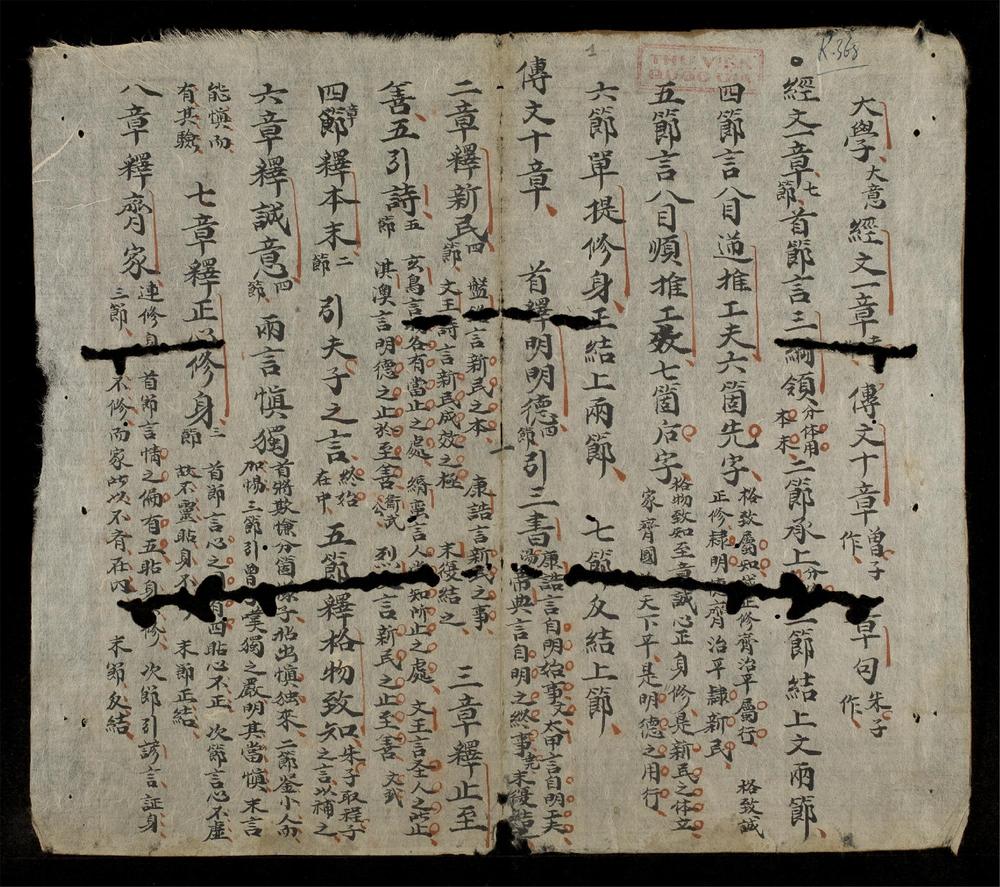 R.368
THƯ VIỆN
QUỐC GIA
1
大學大意 經文一章 傳文十章 曾子作 章句 朱子作
經文一章七節 首節言三綱領分体用本末 二節承上 節結上文兩節
四節言八目逆推工夫六箇先字 格致屬知誠正修齊治平屬行 格致誠正修隸明德齊治平隸新民
五節言八目順推工效七箇后字 格物致知至意誠心正身修是新民之体立 家齊國 天下平是明德之用行
六節單提修身 正結上兩節 七節反結上節
傳文十章 首釋明明德四節 引三書 康誥言自明始事 太甲言自明工夫 帝典言自明之終事 末後結
二章釋新民四節 盤 言新民之本 康誥言新民之事 文王詩言新民成效之極 末後結之 三章釋止至
善五節 五引詩 玄鳥言各有當止之處 緡蠻言人當知所止之處 文王言圣人之所止 淇澳言明德之止於至善 烈 言新民之止至善
四章釋本末二節 引夫子之言 終始在中 五節釋格物致知 朱子取程子之言以補之
六章釋誠意四節 兩言慎獨 首將欺慊分箇 子拈出慎独來 二節 小人而 加惕 三節引曾子 獨之嚴明其當慎 末言
能慎而有其驗 七章釋正心修身三節 首節言心之 有四貼心不正 次節言心不虛 故不靈貼身不 末節正結
八章釋齊家三節 連修身 首節言情之偏有五貼身 修 次節引諺言証身 不修而家所以不齊在內 末節反結